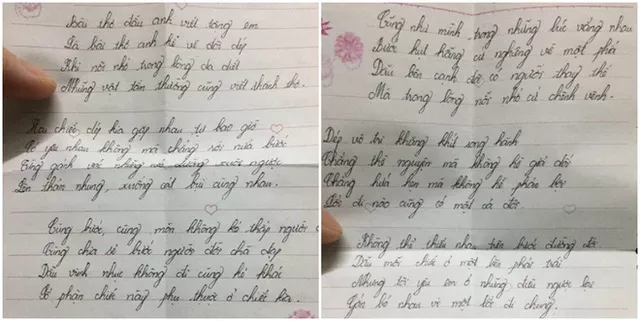 Bài thơ đầu anh viết tặng em
Là bài thơ anh kể về đôi dép
Khi nỗi nhớ trong lòng da diết
Những vật tầm thường cũng viết thành thơ.
Hai chiếc dép kia gặp nhau tự bao giờ
Có yêu nhau không mà chẳng rời nửa bước
Cùng gánh vác những nẻo đường xuôi ngược
Lên thảm nhung, xuống cát bụi cùng nhau.
Cùng bước, cùng mòn không kẻ thấp người
Cùng chia sẻ bước người đời chà đạp
Dẫu vinh nhục không đi cùng kẻ khác
Số phận chiếc này phụ thuộc ở chiếc kia.
Cũng như mình trong những lúc vắng nhau
Bước hụt hẫng cứ nghiêng về một phía
Dẫu bên cạnh đã có người thay thế
Mà trong lòng nỗi nhớ cứ chênh vênh.
Dép vô tri không khít song hành
Chẳng thề nguyện mà không hề giả dối
Chẳng hứa hẹn mà không hề phản bội
Lối đi nào cũng có mặt cả đôi.
Không thể thiếu nhau trên bước đường đời
Dẫu mỗi chiếc ở một bên phải trái
Nhưng tôi yêu em ở những điều ngược lại
Gắn bó nhau vì một lối đi chung.